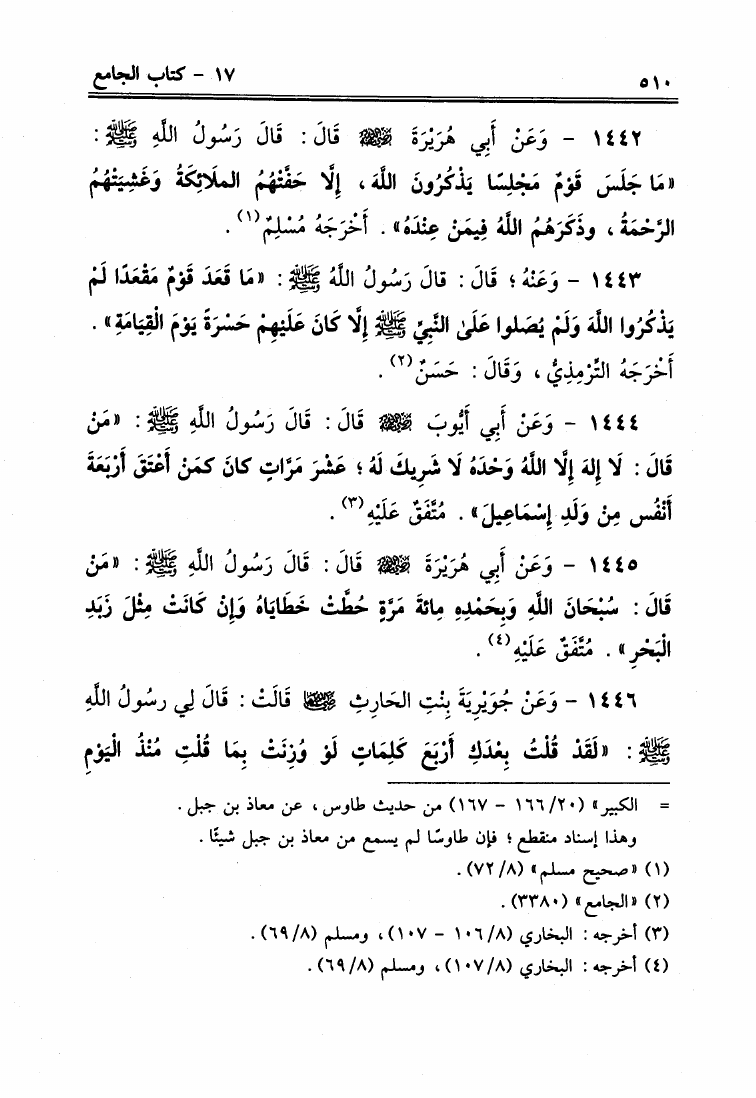 ٥١٠ ١٧ - كتاب الجامع
١٤٤٢ - وَعَنْ أَبِي هُرَيْرَةَ ﵁ قَالَ: قَالَ رَسُولُ اللَّهِ ﷺ:
«مَا جَلَسَ قَوْمٌ مَجْلِسًا يَذْكُرُونَ اللَّهَ، إِلَّا حَفَّتْهُمُ المَلَائِكَةُ وَغَشِيَتْهُمُ
الرَّحْمَةُ، وذَكَرَهُمُ اللَّهُ فِيمَنْ عِنْدَهُ». أَخْرَجَهُ مُسْلِمٌ(١).
١٤٤٣ - وَعَنْهُ؛ قَالَ: قالَ رَسُولُ اللَّهُ ﷺ: «مَا قَعَدَ قَوْمٌ مَقْعَدًا لَمْ
يَذْكُرُوا اللَّهَ وَلَمْ يُصَلوا عَلَىٰ النَّبِيِّ ﷺ إِلَّا كَانَ عَلَيْهِمْ حَسْرَةً يَوْمَ الْقِيَامَةِ».
أَخْرَجَهُ التِّرْمِذِيُّ، وَقَالَ: حَسَنٌ(٢).
١٤٤٤ - وَعَنْ أَبِي أَيُّوبَ ﵁ قَالَ: قَالَ رَسُولُ اللَّهِ ﷺ: «مَنْ
قَالَ: لَا إِلهَ إِلَّا اللَّهُ وَحْدَهُ لَا شَرِيكَ لَهُ؛ عَشْرَ مَرَّاتٍ كانَ كمَنْ أَعْتَقَ أَرْبَعَةَ
أَنْفُس مِنْ وَلَدِ إِسْمَاعِيلَ». مُتَّفَقٌ عَلَيْهِ(٣).
١٤٤٥ - وَعَنْ أَبِي هُرَيْرَةَ ﵁ قَالَ: قَالَ رَسُولُ اللَّهِ ﷺ: «مَنْ
قَالَ: سُبْحَانَ اللَّهِ وَبِحَمْدِهِ مِائةَ مَرَّةٍ حُطَّتْ خَطَايَاهُ وَإِنْ كَانَتْ مِثْلَ زَبَدِ
الْبَحْرِ». مُتَّفَقٌ عَلَيْهِ(٤).
١٤٤٦ - وَعَنْ جُوَيْرِيَةَ بِنْتِ الحَارِثِ ﵂ قَالَتْ: قَالَ لِي رسُولُ اللَّهِ
ﷺ: «لَقَدْ قُلْتُ بِعْدَكِ أَرْبَعَ كَلِمَاتٍ لَوْ وُزِنَتْ بِمَا قُلْتِ مُنْذُ الْيَوْمِ
= الكبير» (٢٠/ ١٦٦ - ١٦٧) من حديث طاوس، عن معاذ بن جبل.
وهذا إسناد منقطع؛ فإن طاوسًا لم يسمع من معاذ بن جبل شيئًا.
(١) «صحيح مسلم» (٨/ ٧٢).
(٢) «الجامع» (٣٣٨٠).
(٣) أخرجه: البخاري (٨/ ١٠٦ - ١٠٧)، ومسلم (٨/ ٦٩).
(٤) أخرجه: البخاري (٨/ ١٠٧)، ومسلم (٨/ ٦٩).